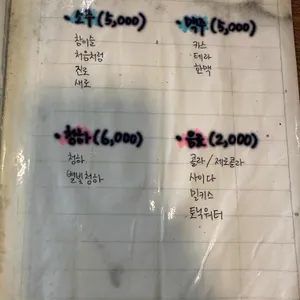 · 소주 (5,000)
참이슬
처음처럼
진로
새로
· 맥주 (5,000)
카스
테라
한맥
· 청하 (6,000)
청하
별빛청하
· 음료 (2,000)
콜라 / 제로콜라
사이다
밀키스
토닉워터